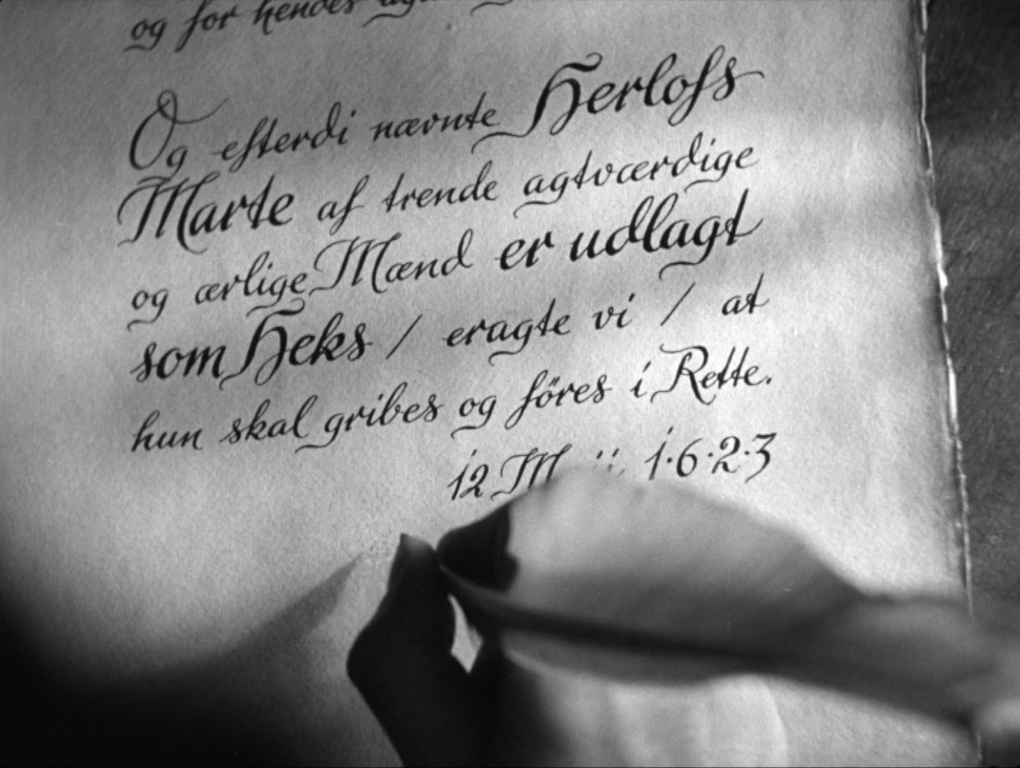 og for hendes
Og efterdi nævnte Herlofs
Marte af trende agtværdige
og ærlige Mænd er udlagt
som Heks / eragte vi / at
hun skal gribes og føres i Rette.
12 1·6·2·3